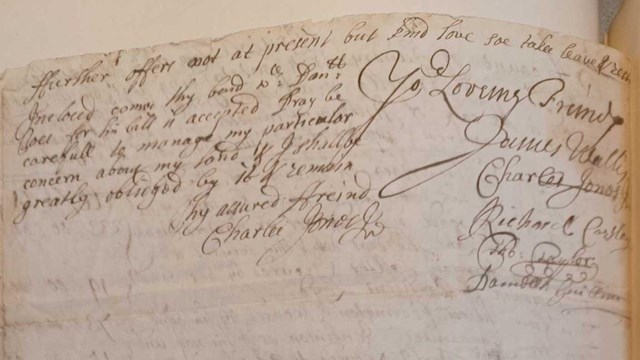 ffurther offers not at present but kind love soe take leave &
Incloced comes thy bond
does for his bill is accepted Pray be
carefull to manage my particular
concern about my land & I shalbe
greatly obliedged by it & remain
thy assured ffreind
Charles Jones Jr
Yor Loveing Frinds
James Wally
Charles Jones
Richard
Tho: